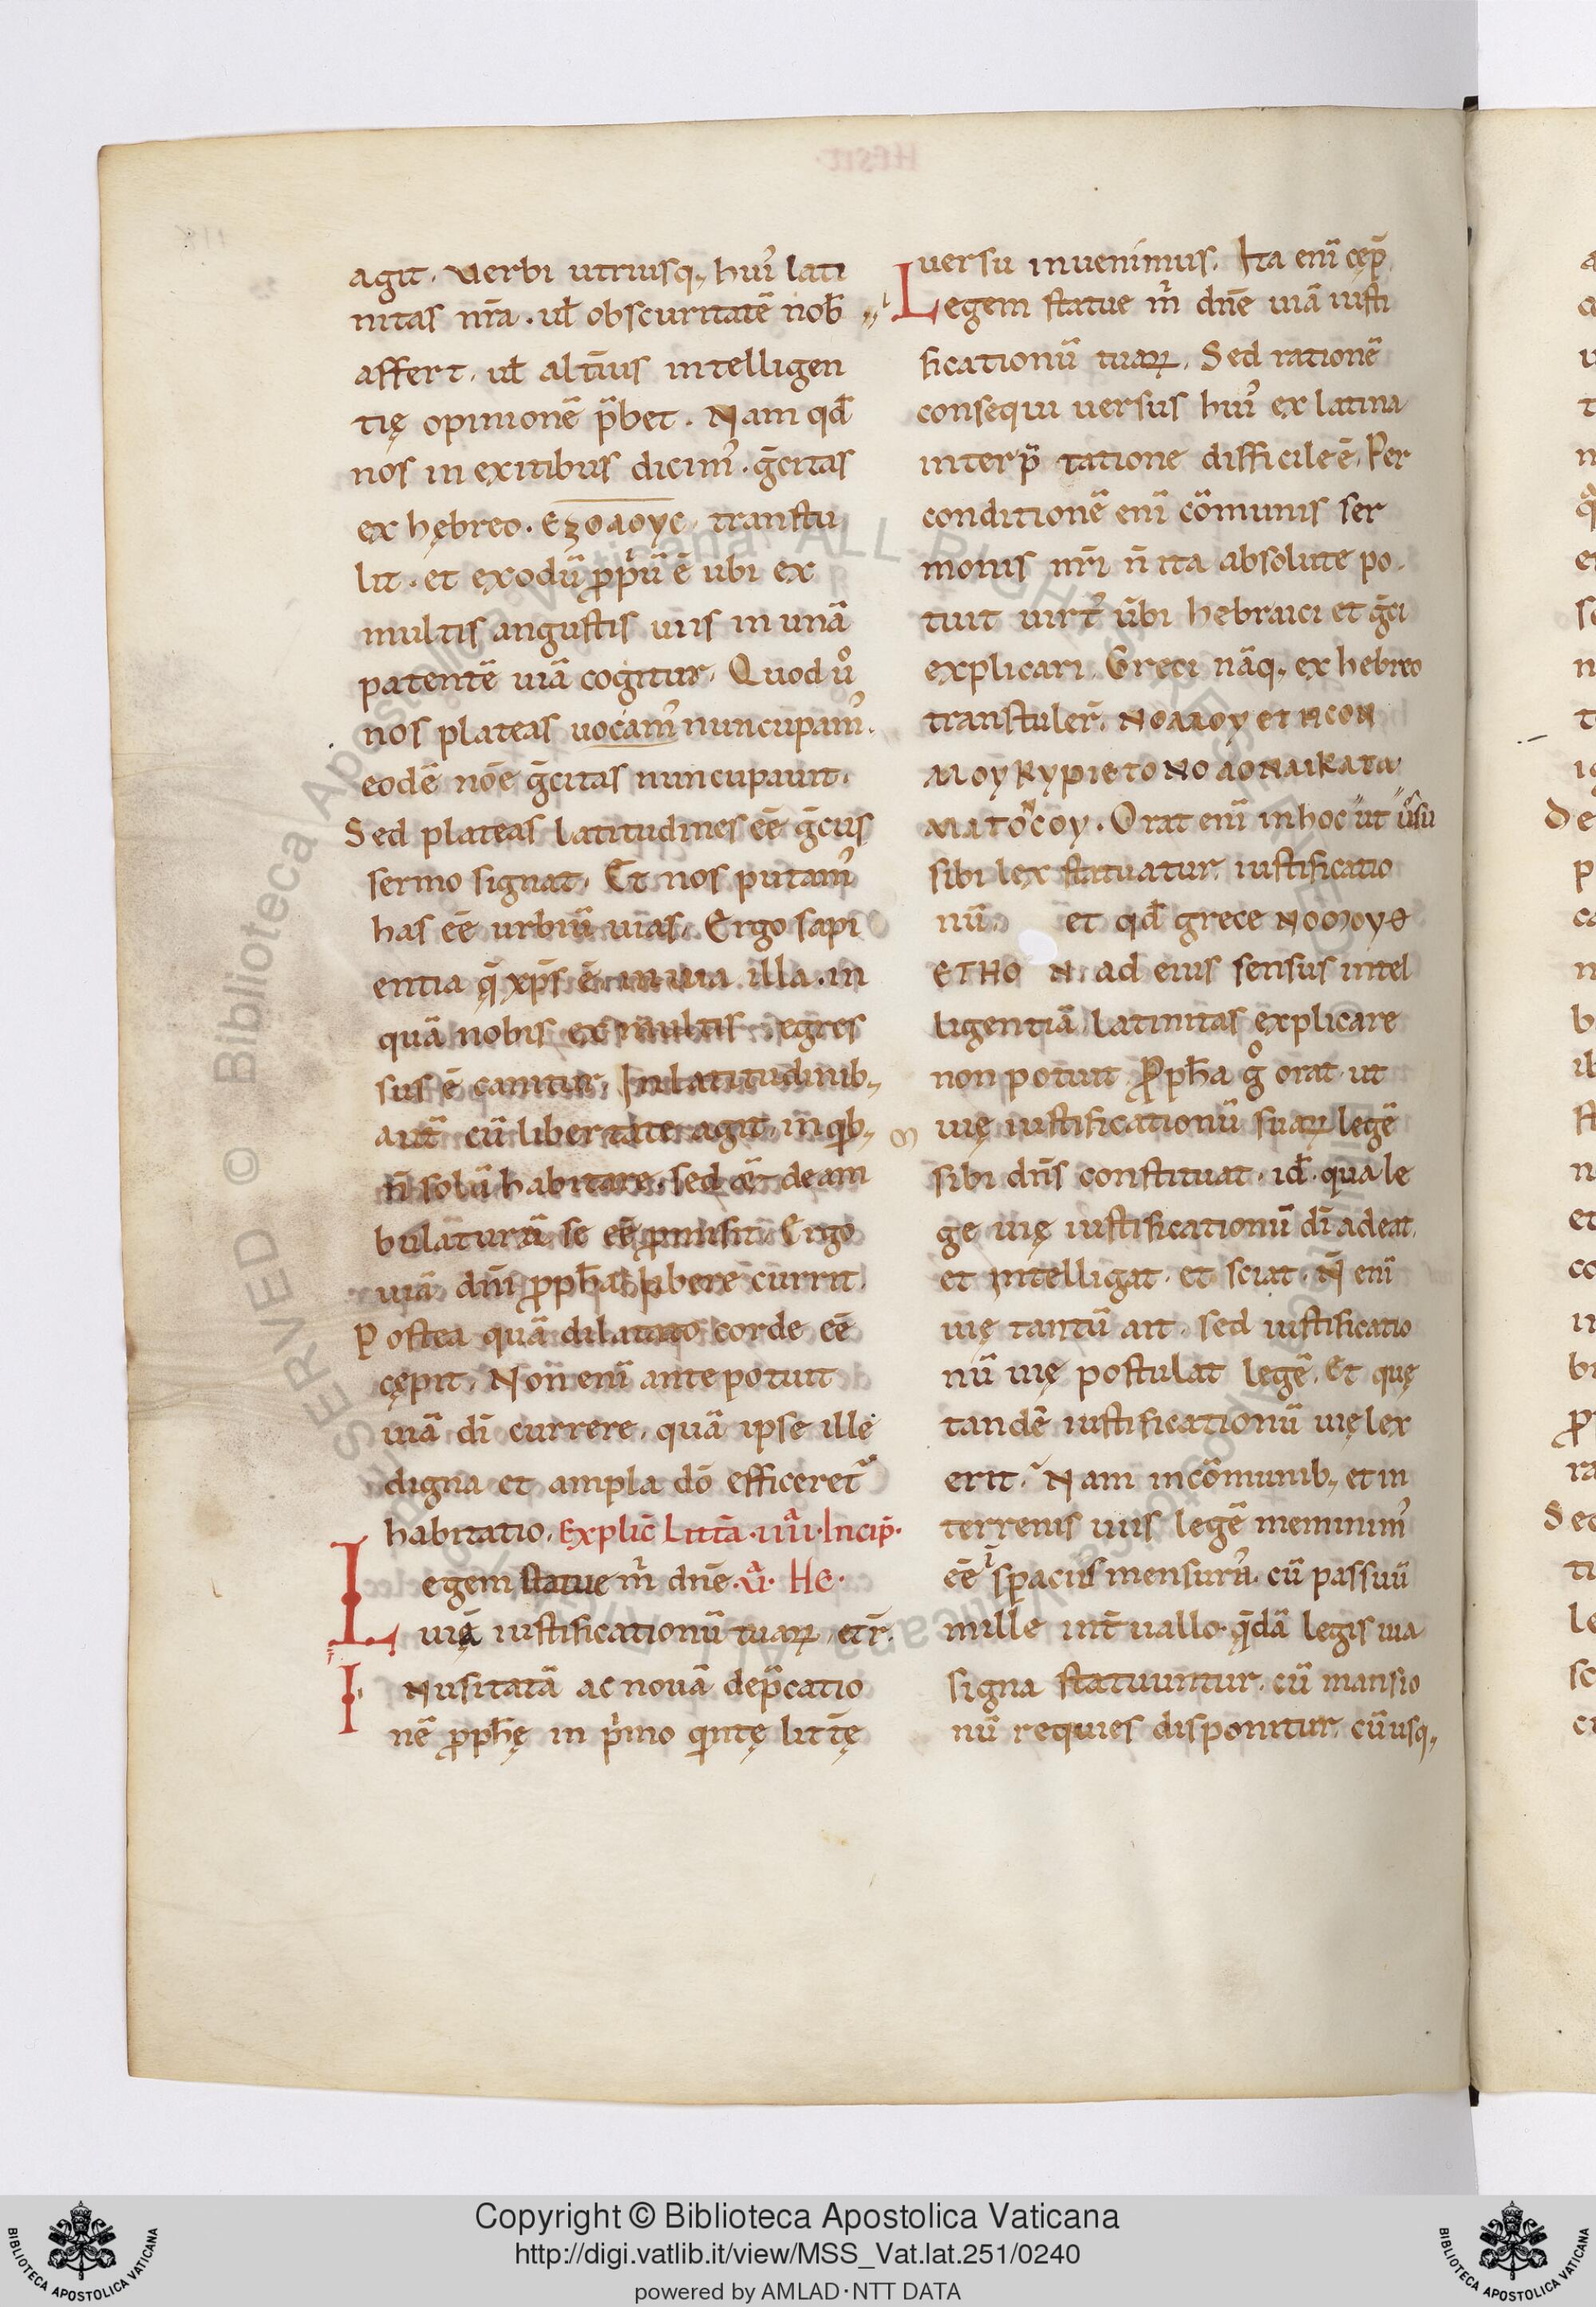 agit. Verbi utriusq; hui᾽ lati
nitas nr̄a. ul̄ obscuritatē nob̄
affert. ul̄ alt̄ius intelligen
tię opinionē p̄bet. Nam qd̄
nos in exitibus dicim᾽. ḡcitas
ex hębreo. εζοδογc. transtu
lit. et exodū ꝓp̓ū ē ubi ex
multis angustis uiis in unā
patentē uiā cogitur. Quod ů
nos plateas uocam᾽ nuncupam᾽.
eodē nōe ḡcitas nuncupauit.
Sed plateas latitudines eē ḡcus
sermo signat. Et nos putam᾽
has eē urbiū uias. Ergo sapi
entia q̄ xp̄s ē in uia illa. in
quā nobis ex multis egres
sus ē canitur. In latitudinib;
aut̄ cū libertate agit. in qb;
n̄ solū habitare. sed et deam
bulaturū se eē ꝓmisit. Ergo
uiā dn̄i ꝓph̄a libere currit.
Postea quā dilatato corde eē
cępit. Non enī ante potuit
uiā dī currere. quā ipse ille
digna et ampla dō efficeret᾽
habitatio. Explic̄ Litt̄a .iiii. Incip̄.
Legem statue m̓ dn̄e. v. He.
uię iustificationū tuaꝝ. et r̄.
Inusitatā ac nouā dep̄catio
nē ꝓph̄ę in p̓mo qintę litt̄ę
uersu inuenimus. Ita enī cęp̄.
Legem statue m̓ dn̄e uiā iusti
ficationū tuaꝝ. Sed rationē
consequi uersus hui᾽ ex latina
interp̄ tatione difficile ē. Per
conditionē enī cōmunis ser
monis nr̄i n̄ ita absolute po
tuit uirt᾽ ūbi hebraici et ḡci
explicari. Greci nāq; ex hebreo
transtuler̄. ΝΟΜΟΥ ΕΤΗCΟΝ
ΜΟΥ ΚΥΡΙΕ ΤΟ ΝΟ ΔΟΝΔΙΚΑΤΑ
ΜΑΤΟΝCΟΥ. Orat enī in hoc ut ūsu
sibi lex statuatur iustificatio
nū. et qd̄ grece ΝΟΜΟΥΘ
ΕΤΗΟ Ν. ad eius sensus intel
ligentiā latinitas explicare
non potuit. Ꝓph̄a g̊ orat ut
uię iustificationū suaꝝ legē
sibi dn̄s constituat. id̄. qua le
ge uię iustificationū dī adeat.
et intelligat. et sciat. N̄ enī
uię tantū ait. sed iustificatio
nū uię postulat legē. Et quę
tandē iustificationū uię lex
erit. Nam in cōmunib; et in
terrenis uiis legē meminim᾽
eē spaciis mensurā. cū passuū
mille int̄ uallo. q̄dā legis uia
signa statuuntur. cū mansio
nū requies disponitur. cū usq;
Copyright © Biblioteca Apostolica Vaticana
http://digi.vatlib.it/view/MSS_Vat.lat.251/0240
powered by AMLAD·NTT DATA
BIBLIOTECA APOSTOLICA VATICANA
BIBLIOTECA APOSTOLICA VATICANA